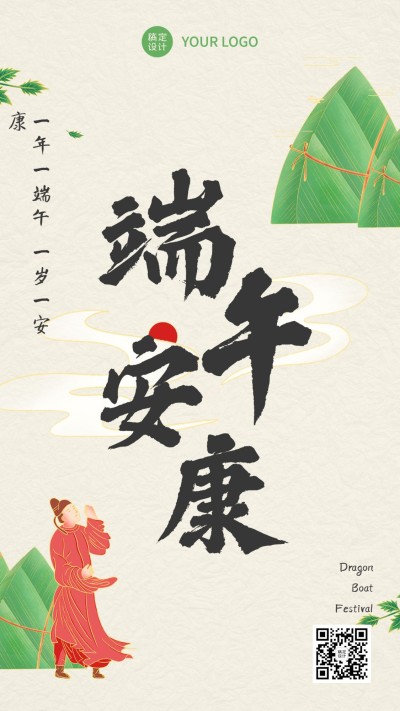 稿定
设计
YOUR LOGO
一年一端午 一岁一安
康
端午
安康
Dragon
Boat
Festival
稿定
设计